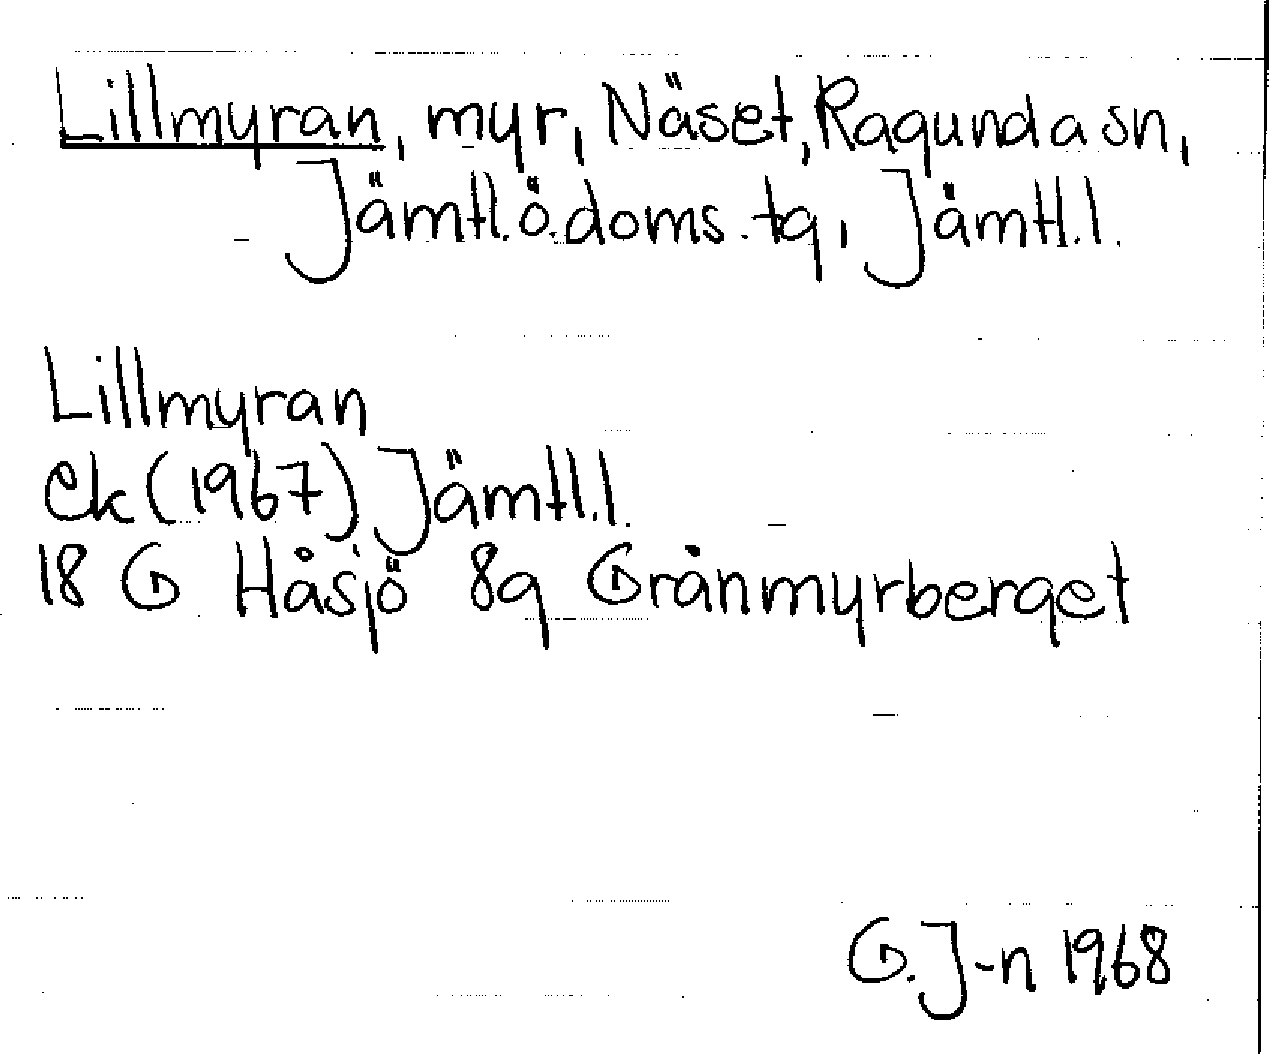 Lillmyran, myr, Näset, Ragunda sn,
Jämtl.ö.doms.tg, Jämtl.l.
Lillmyran
ek (1967) Jämtl.l.
18 G Håsjö 8g Grånmyrberget
G.J-n 1968